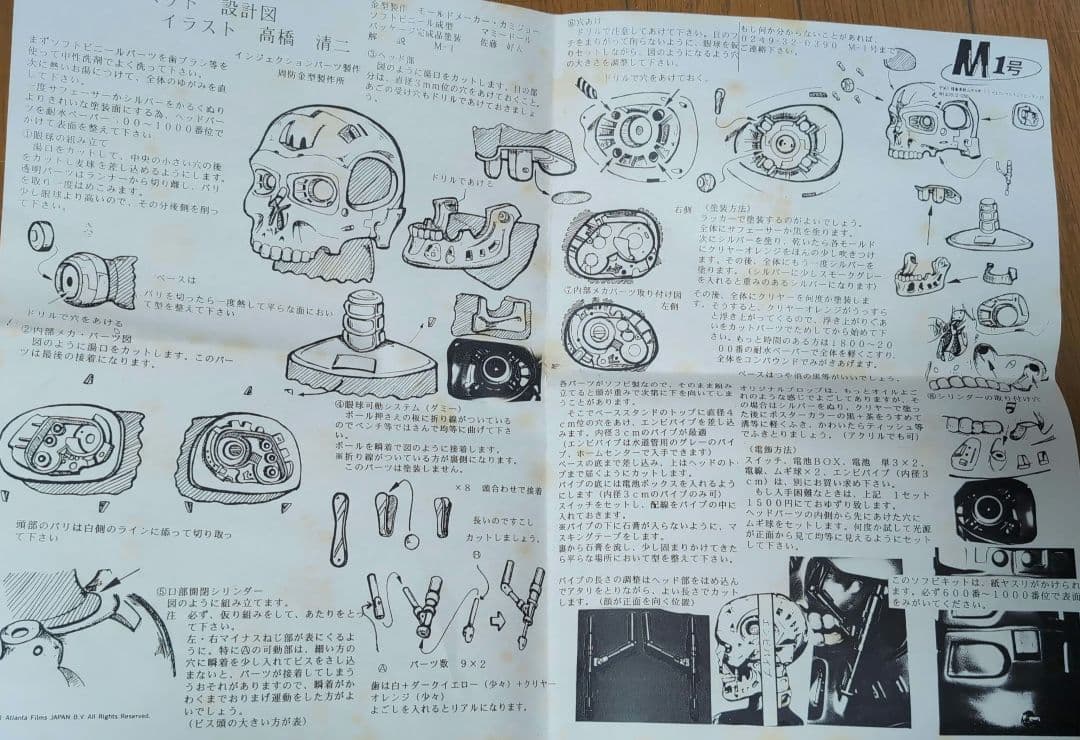 設計図
イラスト 高橋 清二
インジェクションパーツ製作
周防金型製作所
金型製作 モールドメーカー・カミジョー
ソフトビニール成型 マミードール
パッケージ完成品塗装 佐藤 好ん
解 説 M-1
まずソフトビニールパーツを歯ブラシ等を
使って中性洗剤でよく洗って下さい。
次に熱いお湯につけて、全体のゆがみを直
して下さい。
一度サフェーサーかシルバーをかるくぬり
よりきれいな塗装面にする為、ヘッドパー
ツを耐水ペーパー
００～１０００番位で
かけて表面を整えて下さい
①眼球の組み立て
湯口をカットして、中央の小さい穴の後
をカットし支球を差し込めるようにします。
透明パーツはランナーから切り離し、バリ
を取り一度はめこみます。
少し眼球より高いので、その分後側を削っ
て下さい。
③ヘッド部
図のように湯口をカットします。目の部
分は、直径３ｍｍ位の穴をあけておくこと。
あごの受け穴もドリルであけておきましょ
う。
ドリルであける
ベースは
バリを切ったら一度熱して平らな面におい
て型を整えて下さい
ドリルで穴をあける
②内部メカ・パーツ図
図のように湯口をカットします。このパー
ツは最後の接着になります。
頭部のバリは白側のラインに添って切り取っ
て下さい
④眼球可動システム（ダミー）
ボール押さえの板に折り線がついている
のでペンチ等ではさんで均等に曲げて下さ
い。
ボールを瞬着で図のように接着します。
※折り線がついている方が裏側になります。
このパーツは塗装しません。
×８ 頭合わせで接着
長いのですこし
カットしましょう。
Ⓑ
Ⓐ
パーツ数 ９×２
⑤口部開閉シリンダー
図のように組み立てます。
注 必ず、仮り組みをして、あたりをとっ
て下さい。
左・右マイナスねじ部が表にくるよ
うに。特にⒶの可動部は、細い方の
穴に瞬着を少し入れてビスをさし込
まないと、パーツが接着してしまう
うおそれがありますので、瞬着がか
わくまでおりまげ運動をした方がよ
いでしょう。
（ビス頭の大きい方が表）
歯は白＋ダークイエロー（少々）＋クリヤー
オレンジ（少々）
よごしを入れるとリアルになります。
Atlanta Films JAPAN B.V. All Rights Reserved.
⑥穴あけ
ドリルで注意してあけて下さい。目のフ
チをまちがって削らないように、眼球を仮
セットしながら、図のようになるよう穴
の大きさを調整して下さい。
もし何か分からないことがあれば、
０２４９-３２-０３９０ Ｍ-１号まで
ご連絡下さい。
M1号
ドリルで穴をあけておく。
右側
⑦内部メカパーツ取り付け図
左側
（塗装方法）
ラッカーで塗装するのがよいでしょう。
全体にサフェーサーか黒を塗ります。
次にシルバーを塗り、乾いたら各モールド
にクリヤーオレンジをほんの少し吹きつけ
ます。その後、全体にもう一度シルバーを
塗ります。（シルバーに少しスモークグレー
を入れると重みのあるシルバーになります）
その後、全体にクリヤーを何度か塗装しま
す。そうすると、クリヤーオレンジがうっすら
と浮き上がってくるので、浮き上がりぐあ
いをカットパーツでためしてから始めて下
さい。もっと時間のある方は１８００～２０
００番の耐水ペーパーで全体を軽くこすり、
全体をコンパウンドでみがきあげます。
ベースはつや消の黒等がいいでしょう。
各パーツがソフビ製なので、そのまま組み
立てると頭が重みで次第に下を向いてしま
うことがあります。
そこでベーススタンドのトップに直径４
ｃｍ位の穴をあけ、エンビパイプを差し込
みます。内径３ｃｍのパイプが最適
（エンビパイプは水道管用のグレーのパイ
プ、ホームセンターで入手できます）
ベースの底まで差し込み、上はヘッドのト
ップまで届くようにカットします。
パイプの底には電池ボックスを入れるよう
にします（内径３ｃｍのパイプのみ可）
スイッチをセットし、配線をパイプの中に
入れておきます。
※パイプの下に石膏が入らないように、マ
スキングテープをします。
裏から石膏を流し、少し固まりかけてきた
ら平らな場所において型を整えて下さい。
パイプの長さの調整はヘッド部をはめ込ん
でアタリをとりながら、よい長さでカット
します。（顔が正面を向く位置）
オリジナルプロップは、もっとオイルよご
れのような感じでよごしてありますが、そ
の場合はシルバーをぬり、クリヤーで塗っ
た後にポスターカラーの黒・茶をうすめて
溝等に軽くふき、かわいたらティッシュ等
でふきとりましょう。（アクリルでも可）
（電飾方法）
スイッチ、電池ＢＯＸ、電池 単３×２、
電線、ムギ球×２、エンビパイプ（内径３
ｃｍ）は、別にお買い求め下さい。
もし入手困難なときは、上記 １セット
１５００円にておゆずり致します。
ヘッドパーツの内側から先にあけた穴に
ムギ球をセットします。何度か試して光源
が正面から見て均等に見えるようにセット
して下さい。
⑧シリンダーの取り付け穴
エンビパイプ
このソフビキットは、紙ヤスリがかけられ
ます。必ず６００番～１０００番位で表面
をみがいてください。